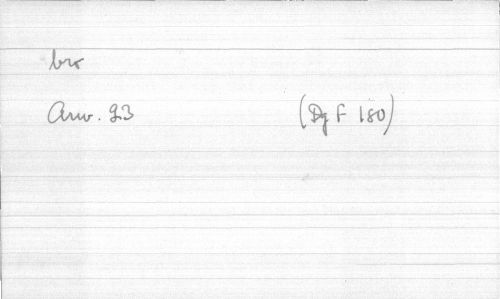 bro
Arw. 23 (Dg F 180)